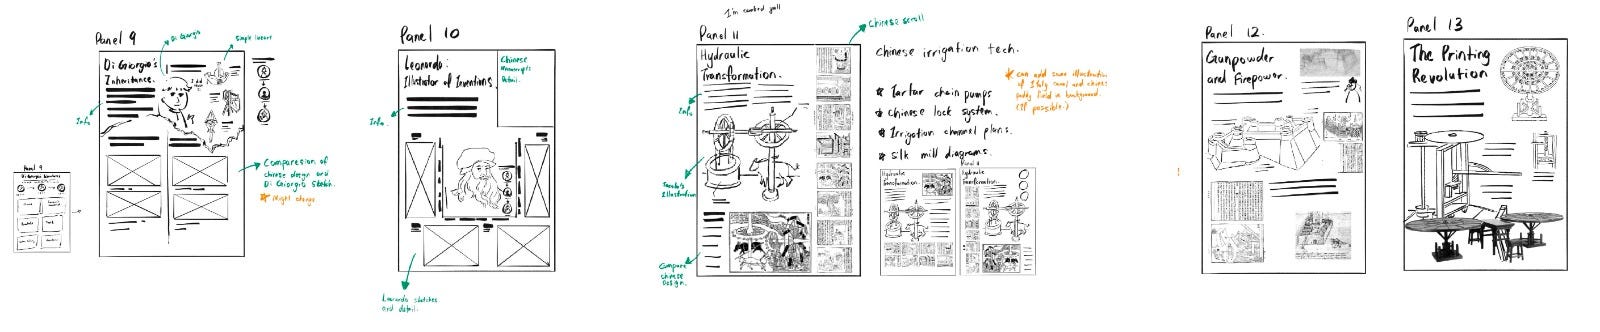 Panel 9
Di Giorgio
Simple lineart
Di Giorgio's
Inheritance.
Info
Comparesion of
chinese design and
Di Giorgio Sketch.
Might change
Panel 9
Panel 10
Leonardo:
Illustrator of Inventions
Chinese
Manuscripts
Detail.
Info.
Leonardo sketches
and detail.
I'm cooked yall
Panel 11
Chinese scroll
Hydraulic
Transformation.
Info
Taccola's
Illustration
Compare
chinese
Design.
Chinese irrigation tech.
Tartar chain pumps
Chinese lock system.
Irrigation channel plans.
Silk mill diagrams.
can add some illustration
of Italy canal and chinese
paddy field as background.
(If possible.)
Hydraulic
Transformation.
Hydraulic
Transformation.
Panel 12.
Gunpowder
and Firepower.
Panel 13
The Printing
Revolution